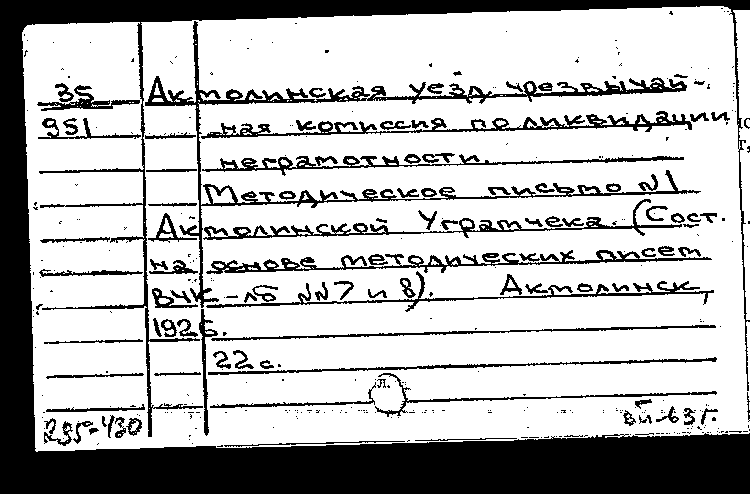 35 Актолинская уезд. чрезвычай-
951 ная комиссия по ликвидации
неграмотности.
Методическое письмо №1
Актолинской Уграмчека. (Сост.
на основе методических писем
ВЧК-лб №№7 и 8). Актолинск,
1926.
22 с.
л.
295-430